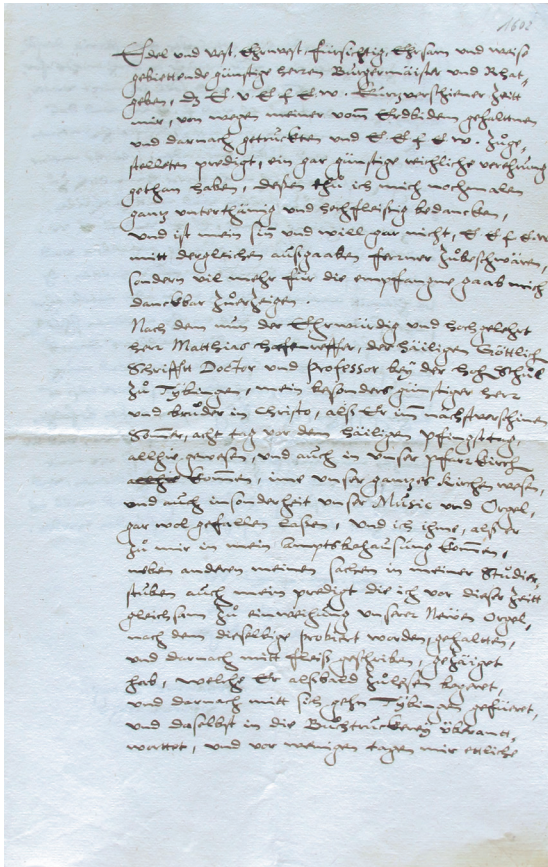 1602
Edel und Vest, Ehrnvest, fürsichtig, Ehrsam und weiß
gebiettende günstige herren Burgermaister und Rhat,
geben, dz E V E f E w. kurtzverschiener Zeitt
mir, von wegen meiner vom Erdbidem gehalttnen
und darnach getruckten und E E f E w. Zuge,
stelleten predigt, ein gar günstige reichliche verehrung
gethan haben, deßen thu ich mich nochmalen
gantz unterthänig und hochfleißig bedancken,
und ist mein sin und will gar nicht, E E f E w
mitt dergleichen außgaaben ferrner Zubeschwären,
sondern vil mehr für die empfangne gaab mich
danckbar Zuerzeigen.
Nach dem nun der Ehrwürdig und hochgelehrt
herr Matthias hafenreffer, der häiligen Göttlichen
Schrifft Doctor und Professor bey der hohen Schul
Zu Tybingen, mein besonders günstiger herr
und bruder in Christo, alß Er im nächstverschinen
Sommer, acht tag vor dem häiligen Pfingsttag,
allhie gewesen, und auch in unser Pfarrkirch
kommen, ime unser gantzes kirchen wesen,
und auch insonderheit unser Music und Orgel,
gar wol gefallen laßen, und ich ihme, alß er
Zu mir in mein Amptsbehausung kommen,
neben anderen meinen sachen in meiner Studier,
stuben auch mein predigt die ich vor dieser Zeitt
gleichsam Zu einweihung unserer Newen Orgel,
nach dem dieselbige probiert worden, gehaltten,
und darnach mitt fleiß geschriben, gezäiget
hab, welche Er alßbald Zulesen begeret,
und darnach mitt sich gehn Tybingen gefüeret,
und daselbst in die Buchtruckerey überantt,
worttet, und vor wenigen tagen mir ettliche